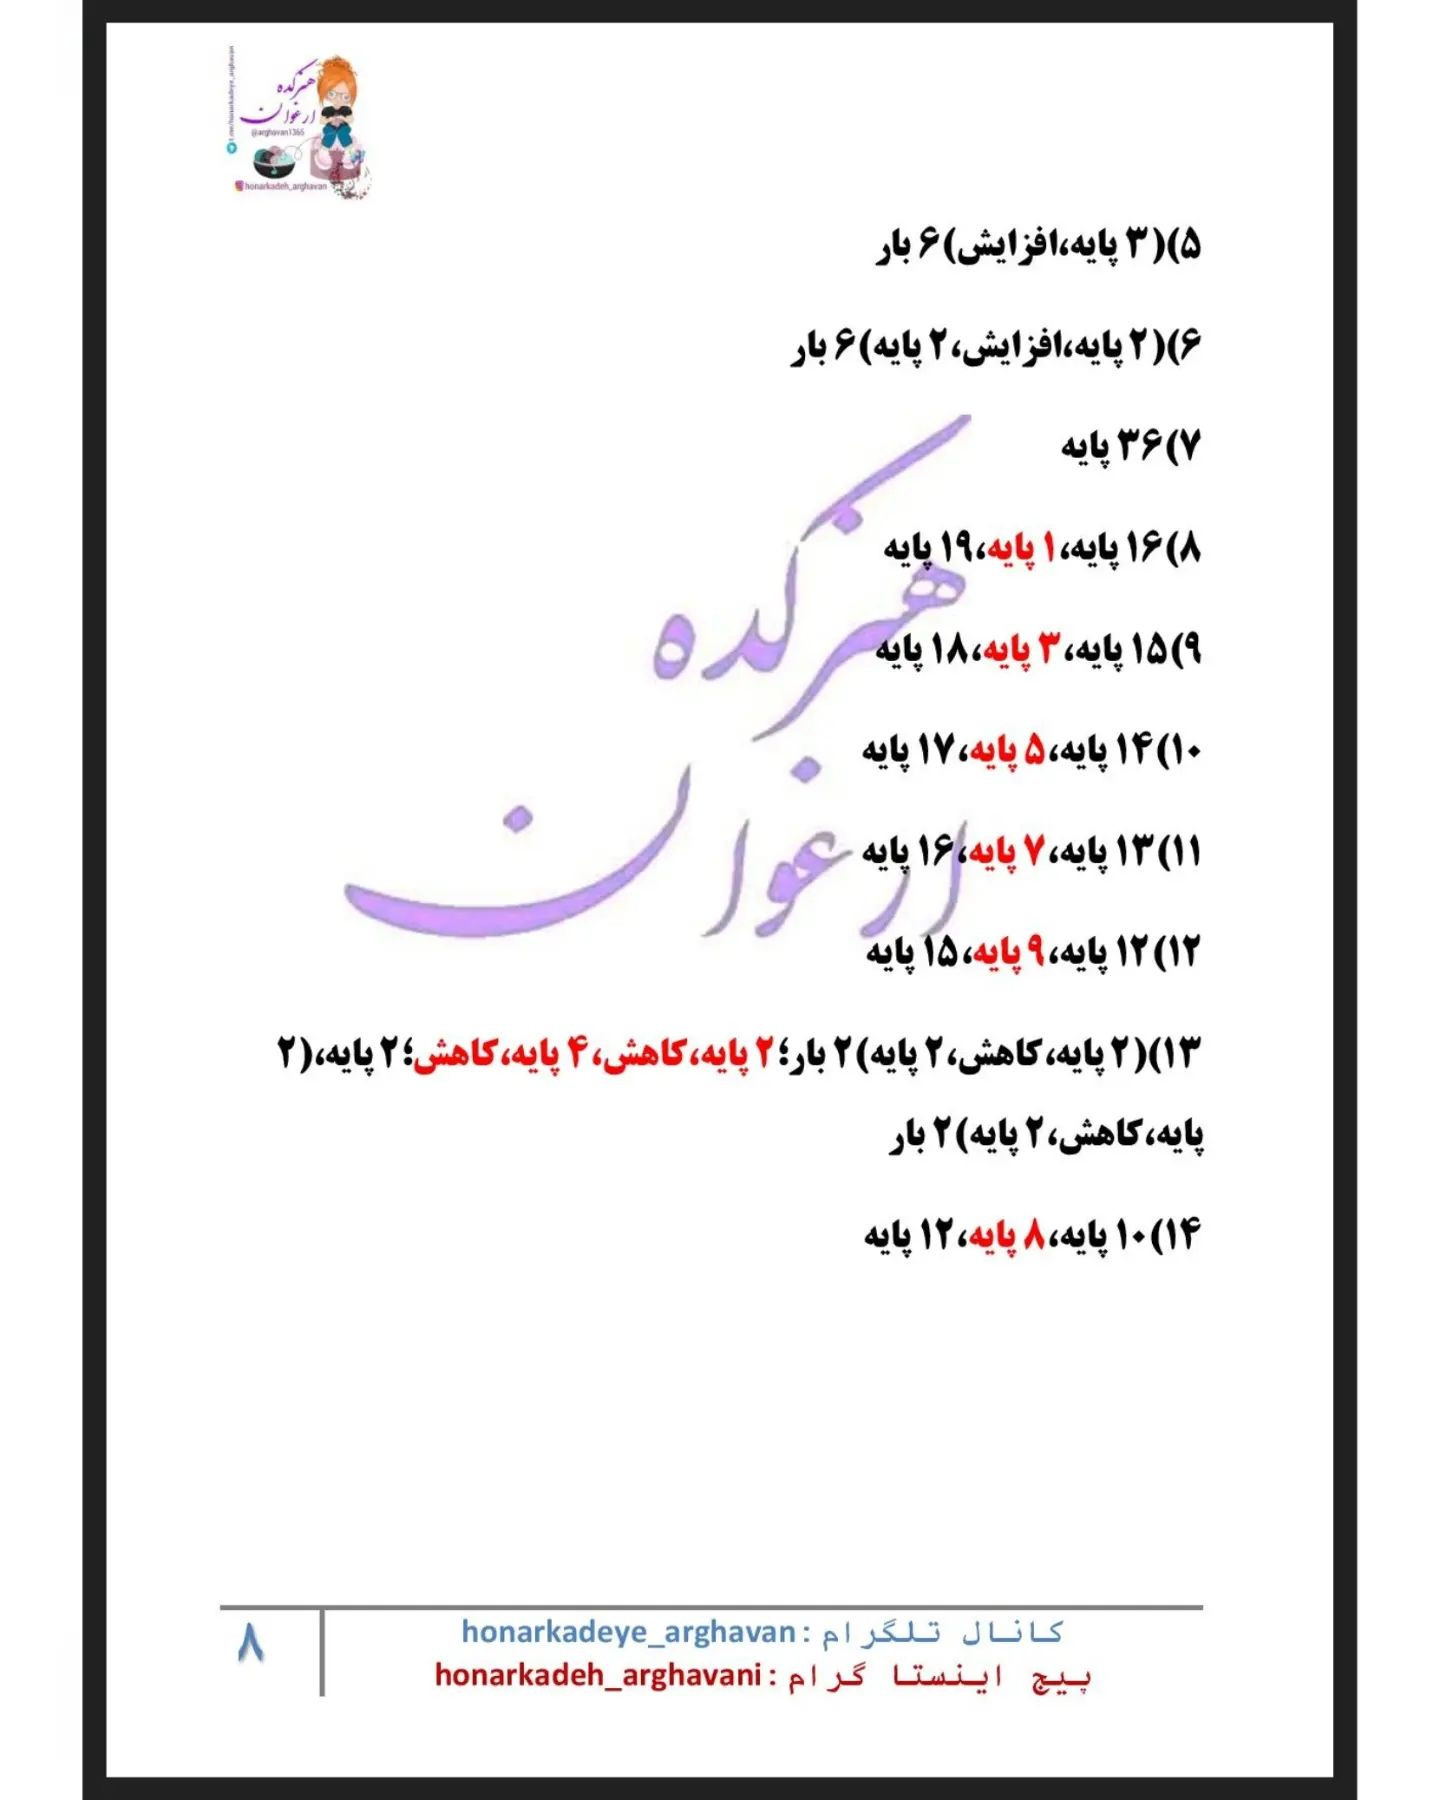 t.me/honarkadeye_arghavan
هنرکده
ارغوان
@arghavan1365
honarkadeh_arghavan
۵)(۳ پایه،افزایش)۶ بار
۶)(۲ پایه،افزایش،۲ پایه)۶ بار
۷)۳۶ پایه
۸)۱۶ پایه،۱ پایه،۱۹ پایه
۹)۱۵ پایه،۳ پایه،۱۸ پایه
۱۰)۱۴ پایه،۵ پایه،۱۷ پایه
۱۱)۱۳ پایه،۷ پایه،۱۶ پایه
۱۲)۱۲ پایه،۹ پایه،۱۵ پایه
۱۳)(۲ پایه،کاهش،۲ پایه)۲ بار؛۲ پایه،کاهش،۴ پایه،کاهش؛۲ پایه،(۲
پایه،کاهش،۲ پایه)۲ بار
۱۴)۱۰ پایه،۸ پایه،۱۲ پایه
هنرکده
ارغوان
کانال تلگرام : honarkadeye_arghavan
پیج اینستا گرام : honarkadeh_arghavani
۸